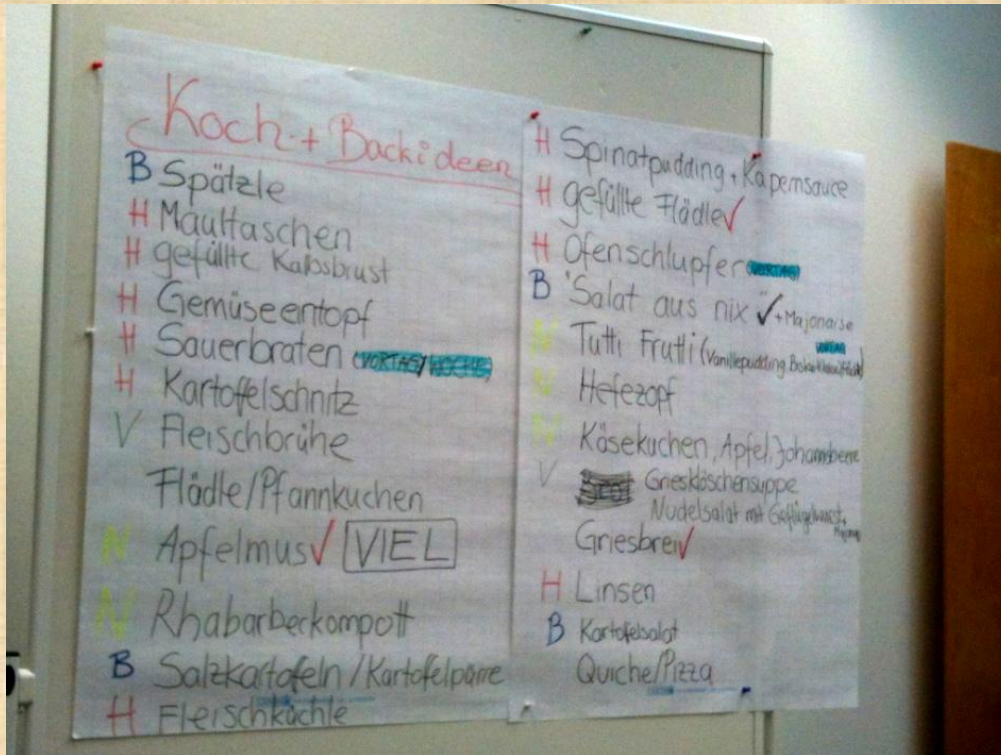 Koch- + Backideen
B Spätzle
H Maultaschen
H gefüllte Kalbsbrust
H Gemüseeintopf
H Sauerbraten (VORTAG/WOCHE)
H Kartoffelschnitz
V Fleischbrühe
Flädle/Pfannkuchen
N Apfelmus✓ VIEL
N Rhabarberkompott
B Salzkartofeln/Kartofelpürre
H Fleischküchle
H Spinatpudding + Kapernsauce
H gefüllte Flädle✓
H Ofenschlupfer (VORTAG)
B "Salat aus nix"✓ + Majonaise
N Tutti Frutti (Vanillepudding
N Hefezopf
N Käsekuchen, Apfel, Johannsbeere
V Griesklöschensuppe
Nudelsalat mit Geflügelwurst +
Griesbrei✓
H Linsen
B Kartofelsalat
Quiche/Pizza